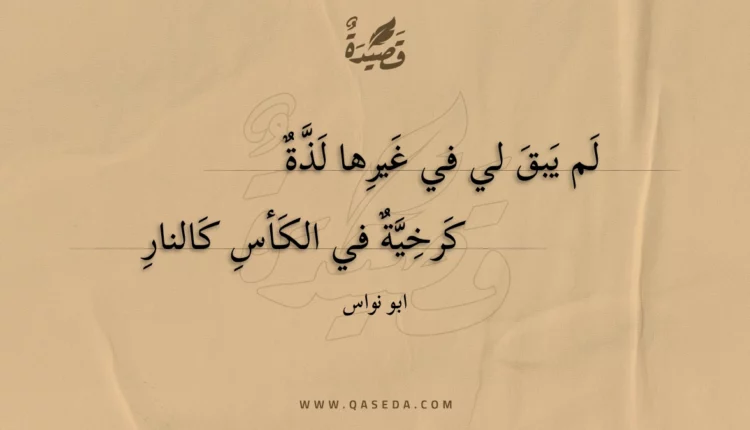 قَصِيدَةٌ
لَم يَبقَ لي في غَيرِها لَذَّةٌ
كَرخِيَّةٌ في الكَأسِ كَالنارِ
ابو نواس
WWW.QASEDA.COM